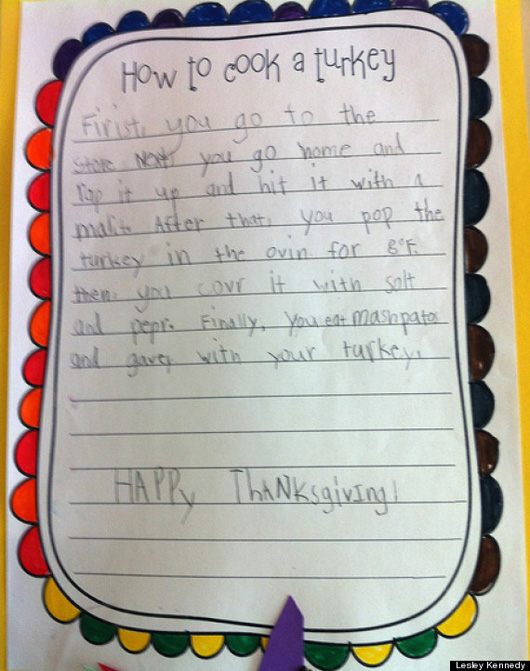 How to cook a turkey
First, you go to the
store. Next, you go home and
rap it up and hit it with a
malit. After that, you pop the
turkey in the ovin for 8°F.
then, you covr it with solt
and pepr. Finally, you eat mashpatos
and gavey with your turkey.
HAPPy ThANKsgiving!
Lesley Kennedy